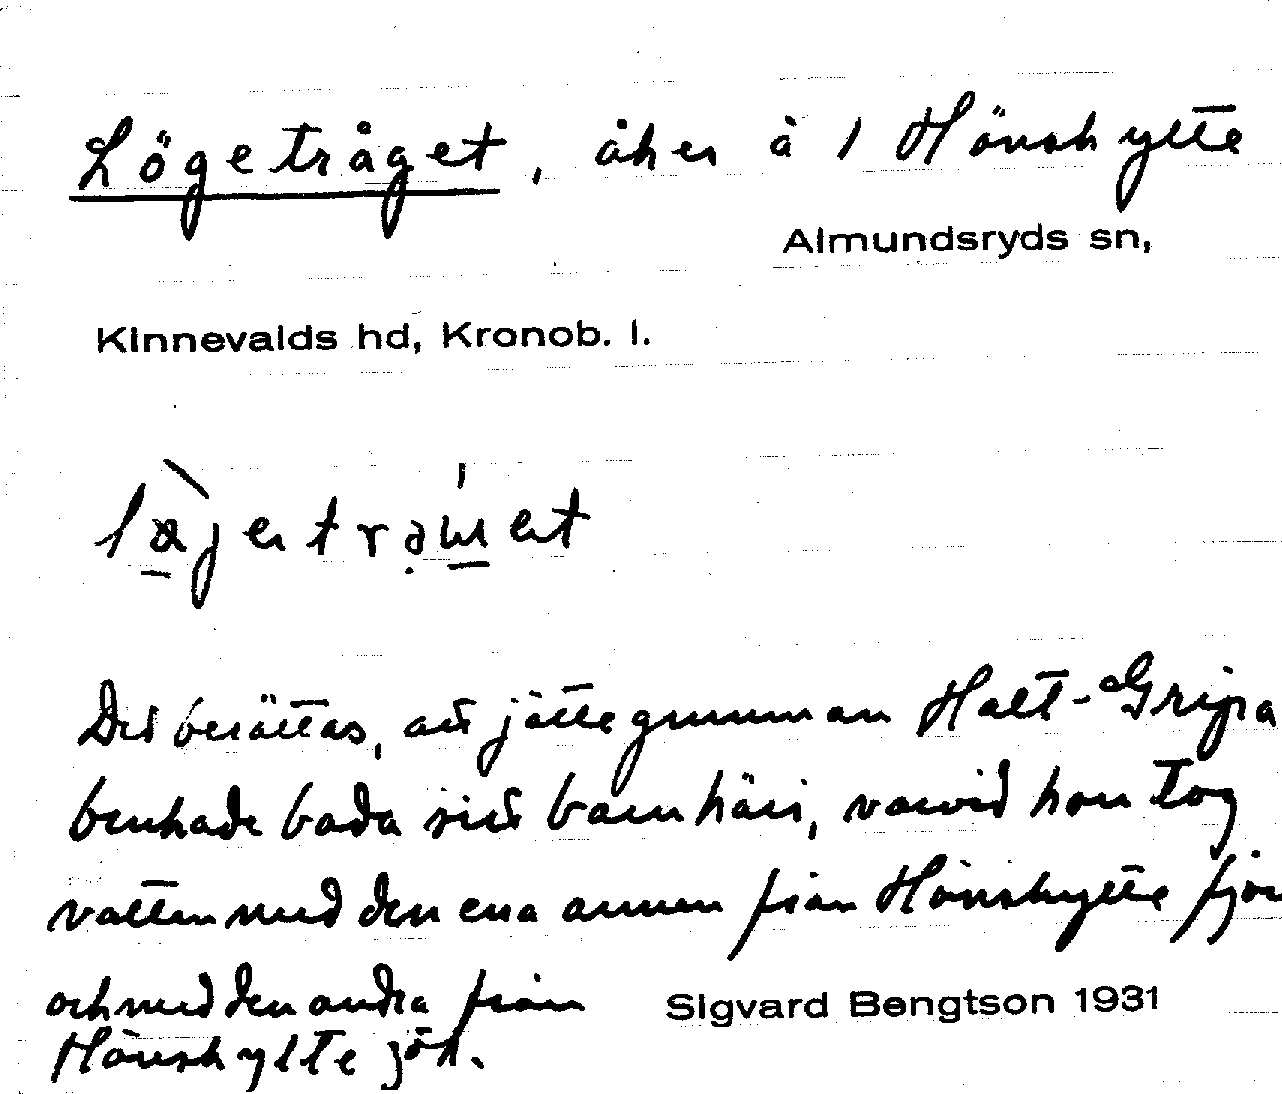 Lögetråget, åker å 1 Hönshylte
Almundsryds sn,
Kinnevalds hd, Kronob. l.
Det berättas, att jättegumman Halt-Gripa
brukade bada sitt barn häri, varvid hon tog
vatten med den ena armen från Hönshylte fjor
och med den andra från
Sigvard Bengtson 1931
Hönshylte jön.